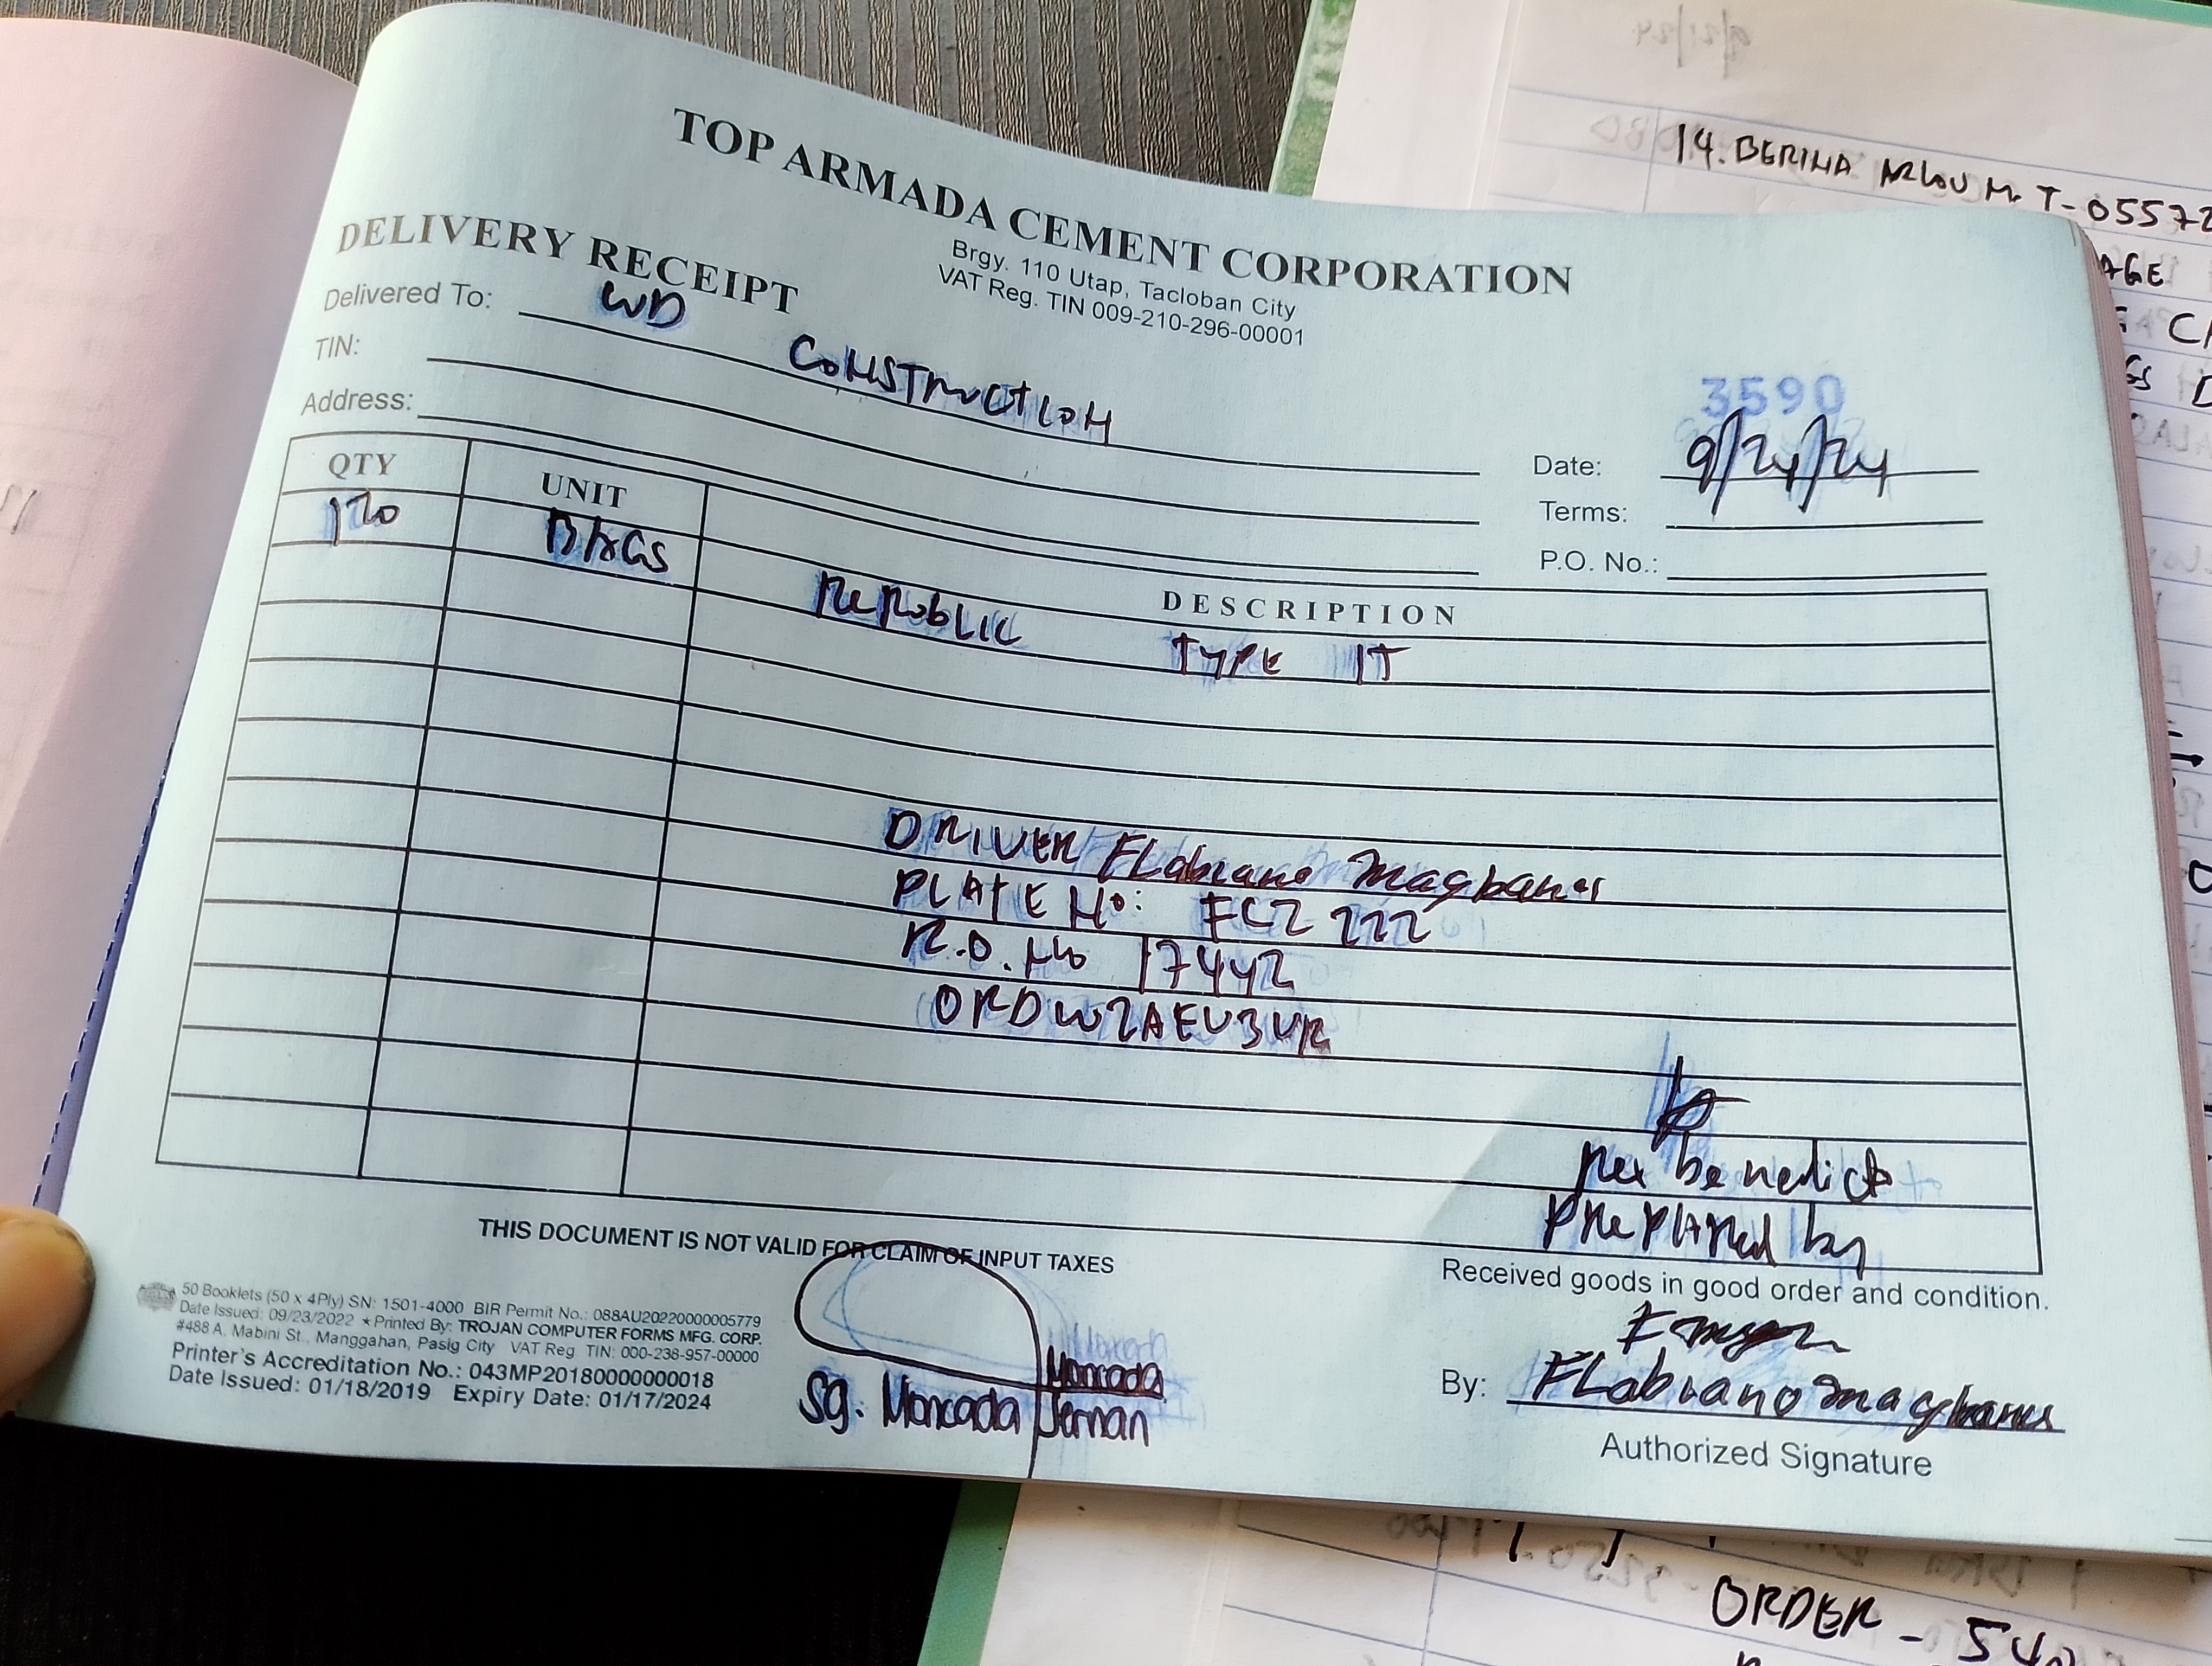 TOP ARMADA CEMENT CORPORATION
Brgy. 110 Utap, Tacloban City
VAT Reg. TIN 009-210-296-00001
DELIVERY RECEIPT
Delivered To: WD CONSTRUCTION
TIN:
Address:
3590
Date: 9/24/24
Terms:
P.O. No.:
QTY UNIT DESCRIPTION
120 BAGS REPUBLIC TYPE 1T
DRIVER FLabiano magbanua
PLATE No: FCZ 222
R.O. No 17442
ORDW2AEU3UR
Rex benedict
Prepared by
THIS DOCUMENT IS NOT VALID FOR CLAIM OF INPUT TAXES
Received goods in good order and condition.
50 Booklets (50 x 4Ply) SN: 1501-4000 BIR Permit No.: 088AU20220000005779
Date Issued: 09/23/2022 ★Printed By: TROJAN COMPUTER FORMS MFG. CORP.
#488 A. Mabini St., Manggahan, Pasig City VAT Reg TIN: 000-238-957-00000
Printer's Accreditation No.: 043MP20180000000018
Date Issued: 01/18/2019 Expiry Date: 01/17/2024
Moncada
Sg. Moncada Jernan
By: FLabiano magbanua
Authorized Signature
14. BERINA ARLOU M. T-05572
AGE
ORDER - 540